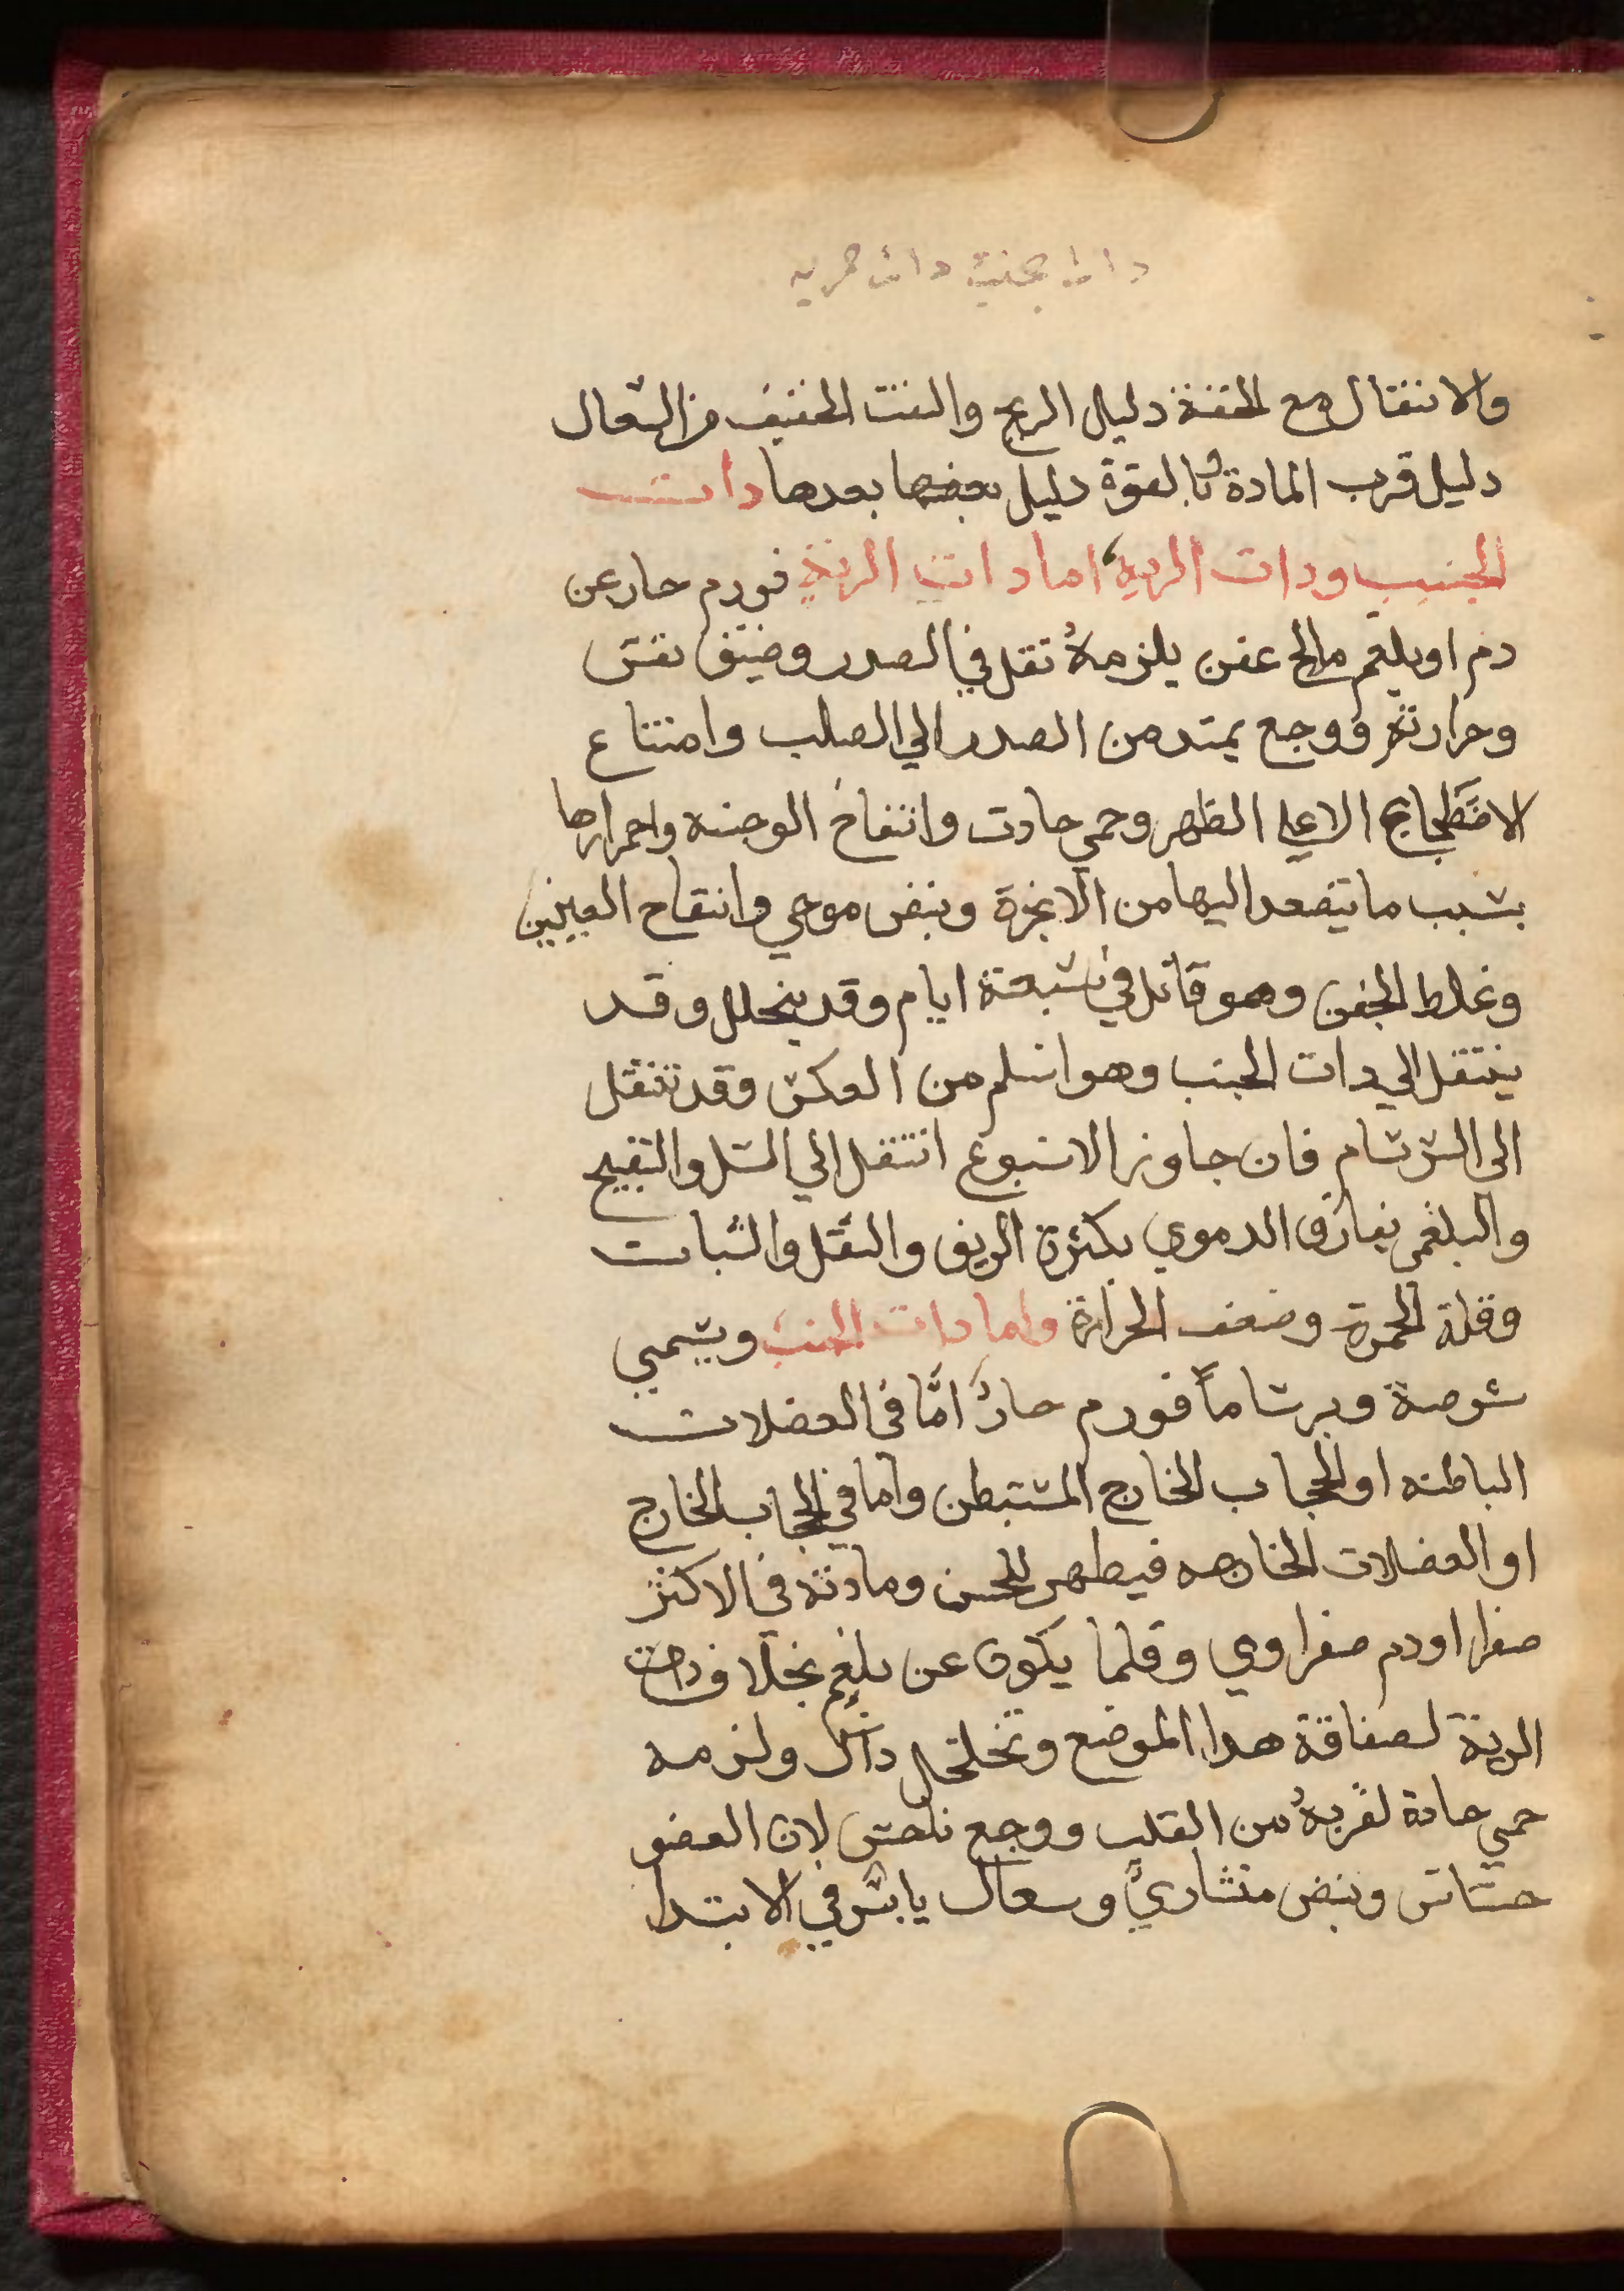 والانتقال مع الخفة دليل الريح والنفث الخفيف من السعال
دليل قرب المادة وبالقوة دليل بعدها دات
الجنب ودات الريه اما دات الرية فورم حار عن
دم او بلغم مالح عفن يلزمهُ ثقل في الصدر وضيق نفس
وحرارته ووجع يمتد من الصدر الي الصلب وامتناع
الاضطجاع الا علي الظهر وحمي حادت وانتفاخ الوجنه واحمرارها
بسبب ما يتصعد اليها من الابخرة ونبض موجي وانتفاح العينين
وغلاط الجفن وهو قاتل في سبعة ايام وقد يتحلل وقد
ينتقل الي دات الجنب وهو اسلم من العكس وقد تنتقل
الى السرسام فان جاوز الاسبوع انتقل الي السل والتقيح
والبلغمي يفارق الدموي بكثرة الريق والثقل والسبات
وقلة الحمرة وضعف الحرارة واما دات الجنب ويسمي
شوصة وبرساماً فورم حارٌ امَّا في العضلات
الباطنه او الحجاب الخارج المستبطن واما في الحجاب الخارج
او العضلات الخارجه فيظهر للحس ومادته في الاكثر
صفرا او دم صفراوي وقلما يكون عن بلغم بخلاف دات
الرية لصفاقة هدا الموضع وتخلخل داك ولزمه
حمي حادة لقربهُ من القلب ووجع ناخس لان العضو
حساس ونبض منشاريٌّ وسعال يابس في الابتدا